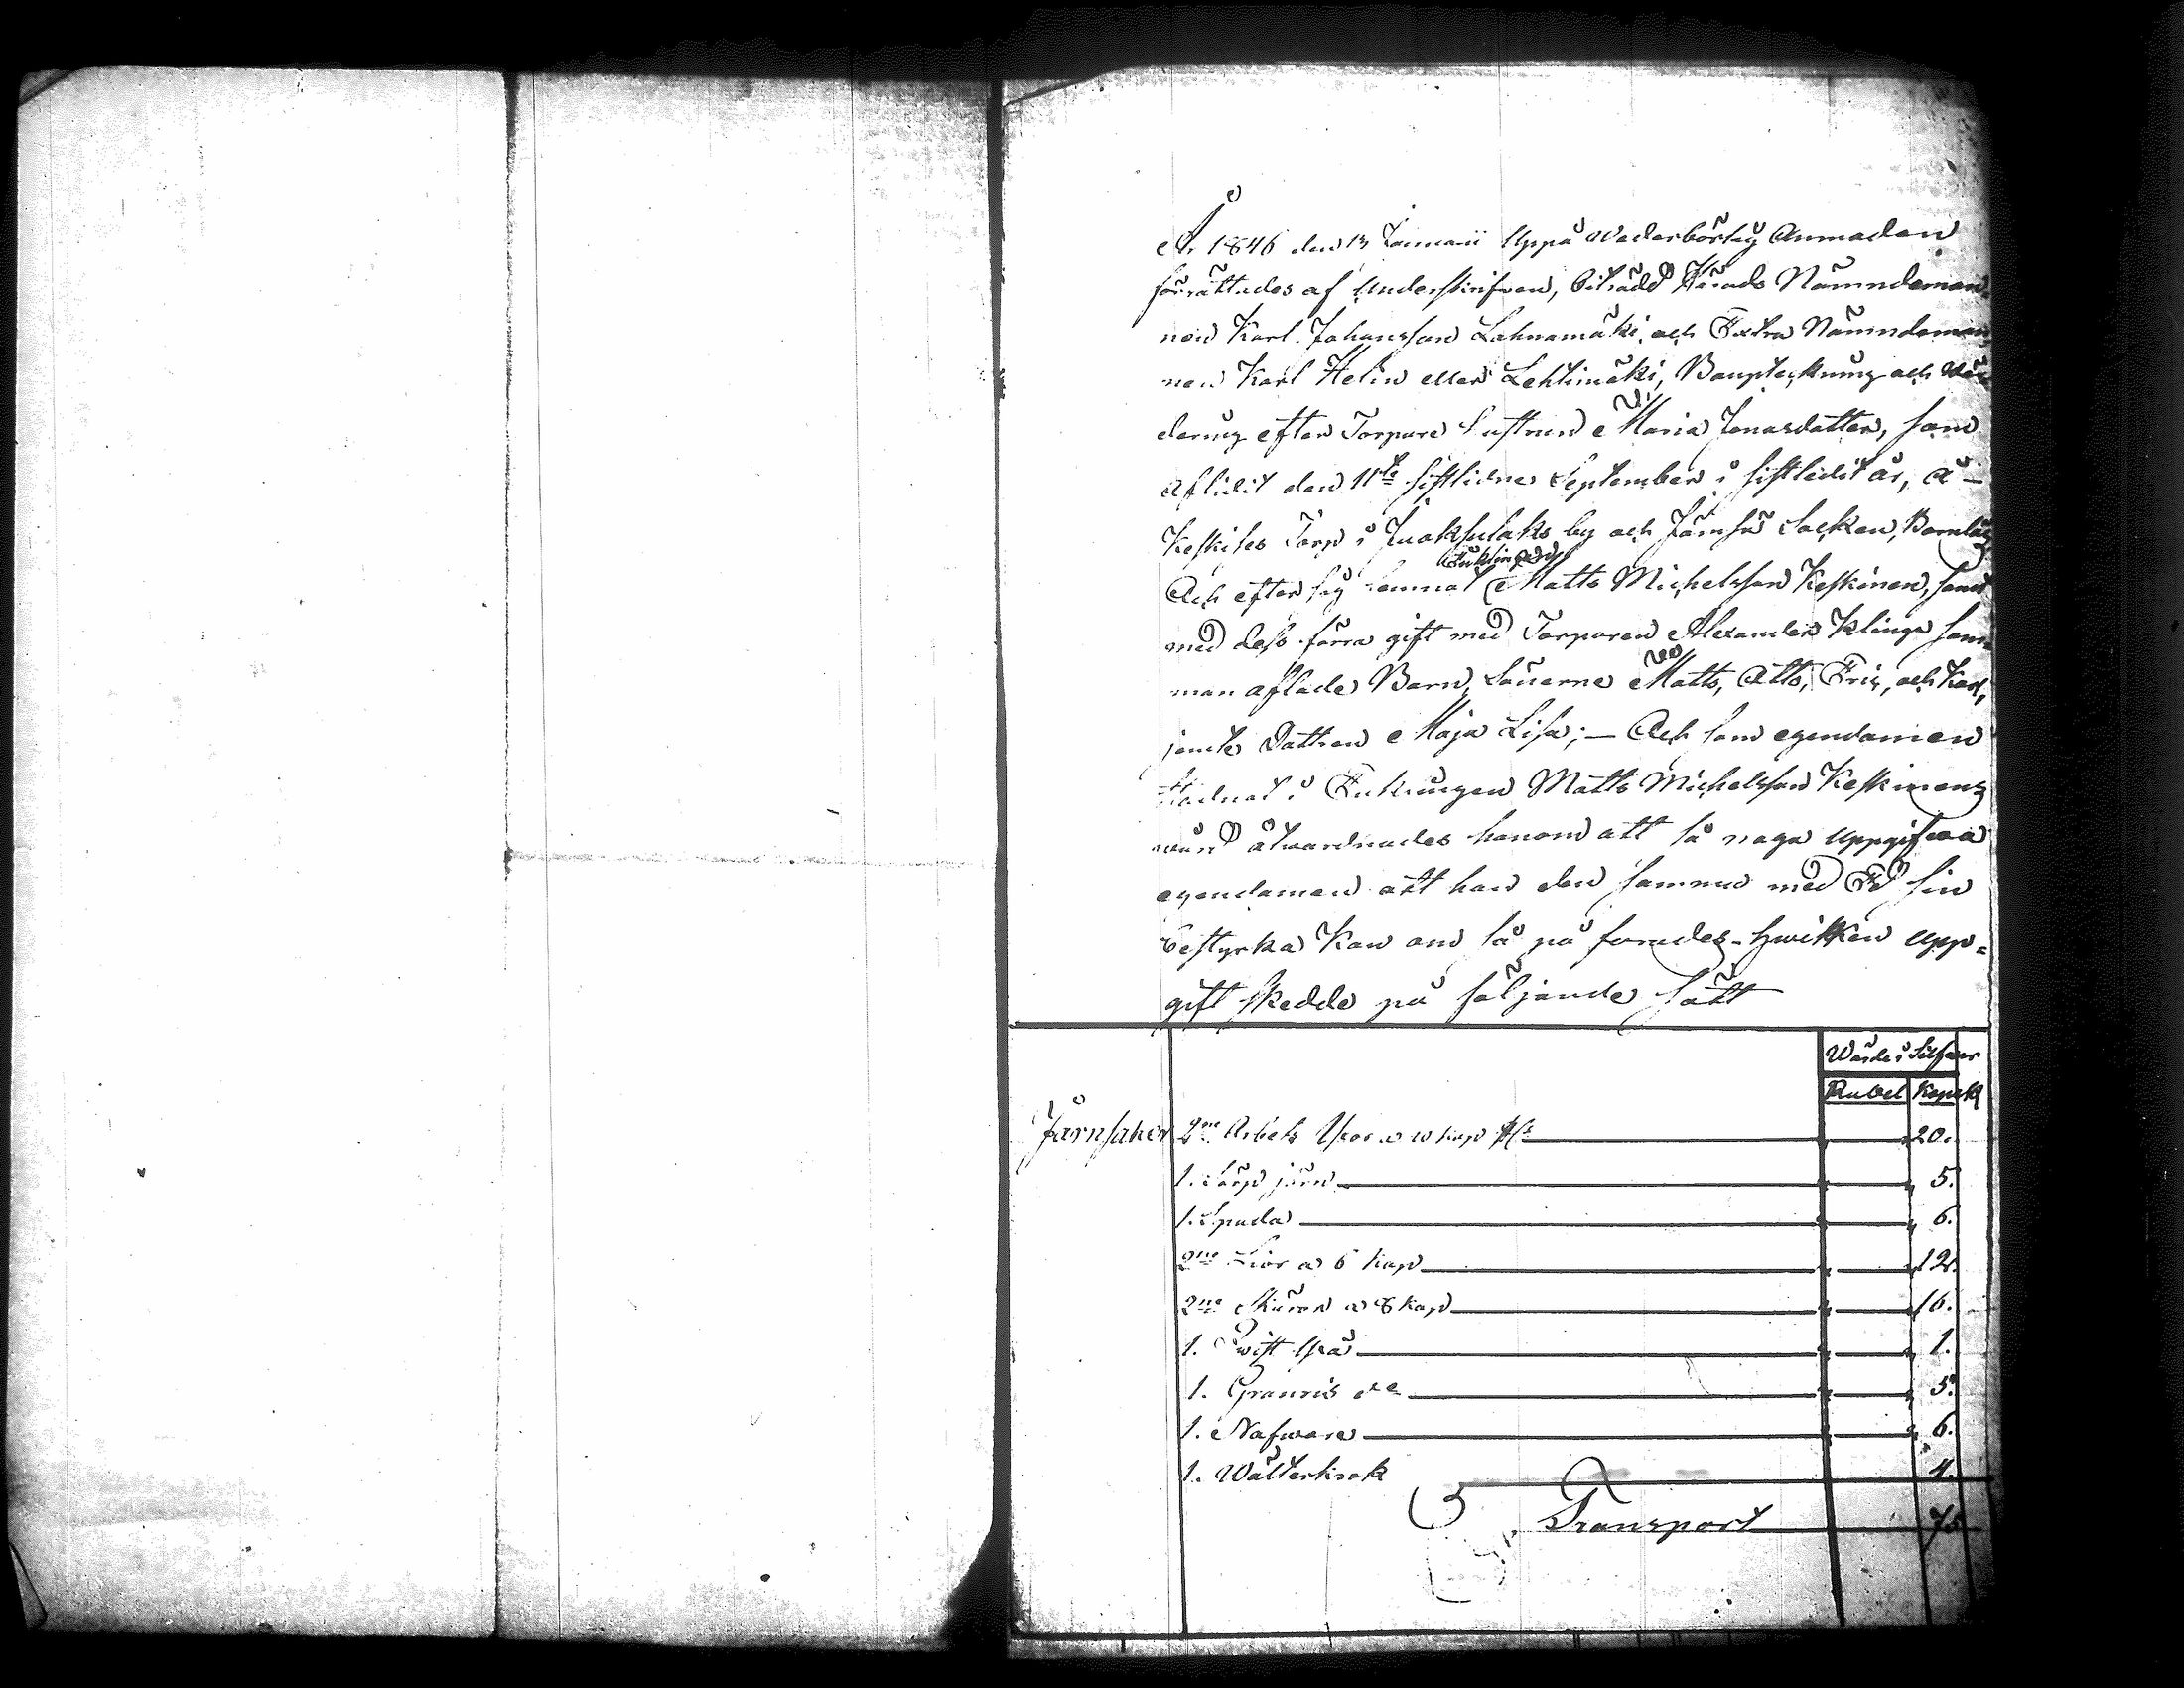 År 1846 den 13 Januarii Uppå Wederbörlig Anmadan
förrättades af Underskrifven, biträdd Härads Nämndeman
nen Karl Johansson Lahnamäki, och Extra Nämndeman
nen Karl Helin eller Lehtimäki, Boupteckning och Wär
dering efter Torpare hustrun Maria Jonasdotter, som
aflidit den 11te sistlidne September i sistledit år, å
Keskises Torp i by och Jämsä Socken, Barnlös
Enklingen
Och efter sig lemnat Matts Michelsson Keskinen, samt
med dess förra gift med Torparen Alexander Klinga sam
man aflade Barn, Sönerne Matts, Otto, Friz, och Karl,
jemte Dottren Maja Lisa; — Och som egendomen
wårdnat i Enklingen Matts Michelsson Keskinens
wård åtwarnades honom att så noga Uppgifwa
egendomen att han den samma med Ed sin
bestyrka Kan om så på fordes - hwilken upp=
gift skedde på följande sätt
Wärde i Silfwer
Rubel Kopek
Järnsaker 2ne Arbets Yxor a 10 kop 20.
1. järn 5.
1. Spada 6.
2ne Liar a 6 kop 12.
2ne Skäror a 8 kop 16.
1. 1.
1. Granris de 5.
1. Nafware 6.
1. Wälterkrok 4.
Transport 75